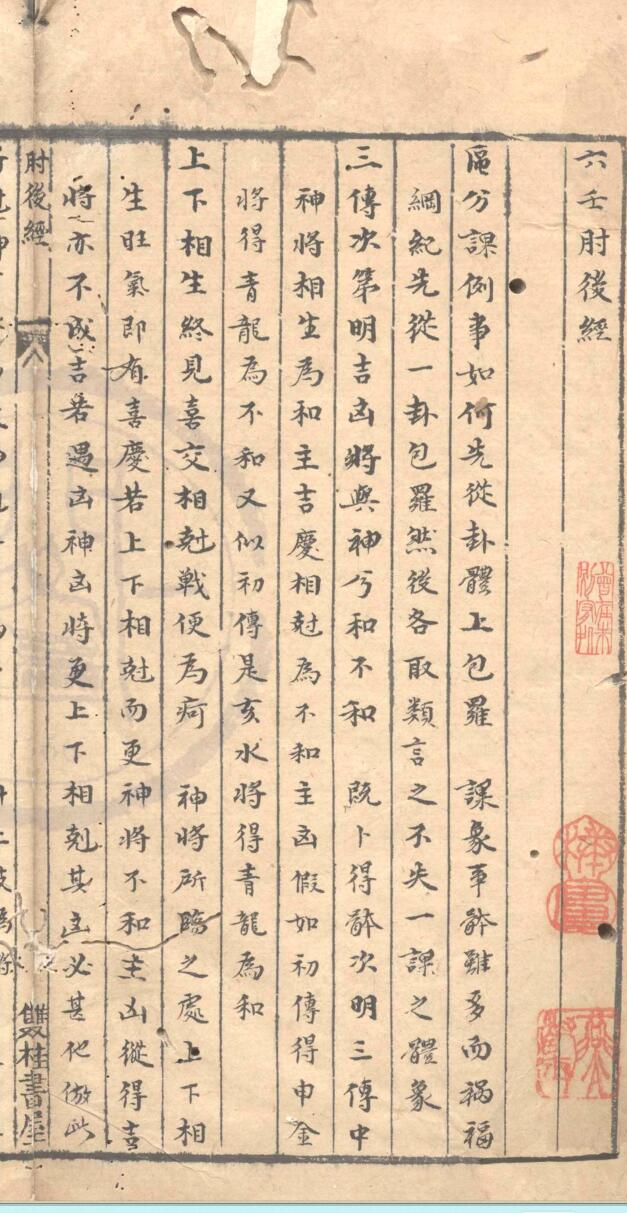 六壬肘後經
區分課例事如何先從卦體上包羅　課象事躰雖多而禍福
綱紀先從一卦包羅然後各取類言之不失一課之體象
三傳次第明吉凶將與神兮和不和　既卜得躰次明三傳中
神將相生為和主吉慶相尅為不和主凶假如初傳得申金
將得青龍為不和又似初傳是亥水將得青龍為和
上下相生終見喜交相尅戰便為疴　神將所臨之處上下相
生旺氣即有喜慶若上下相尅而更神將不和主凶縱得吉
將亦不成吉若遇凶神凶將更上下相剋其凶必甚他倣此
肘後經
一
雙桂書屋